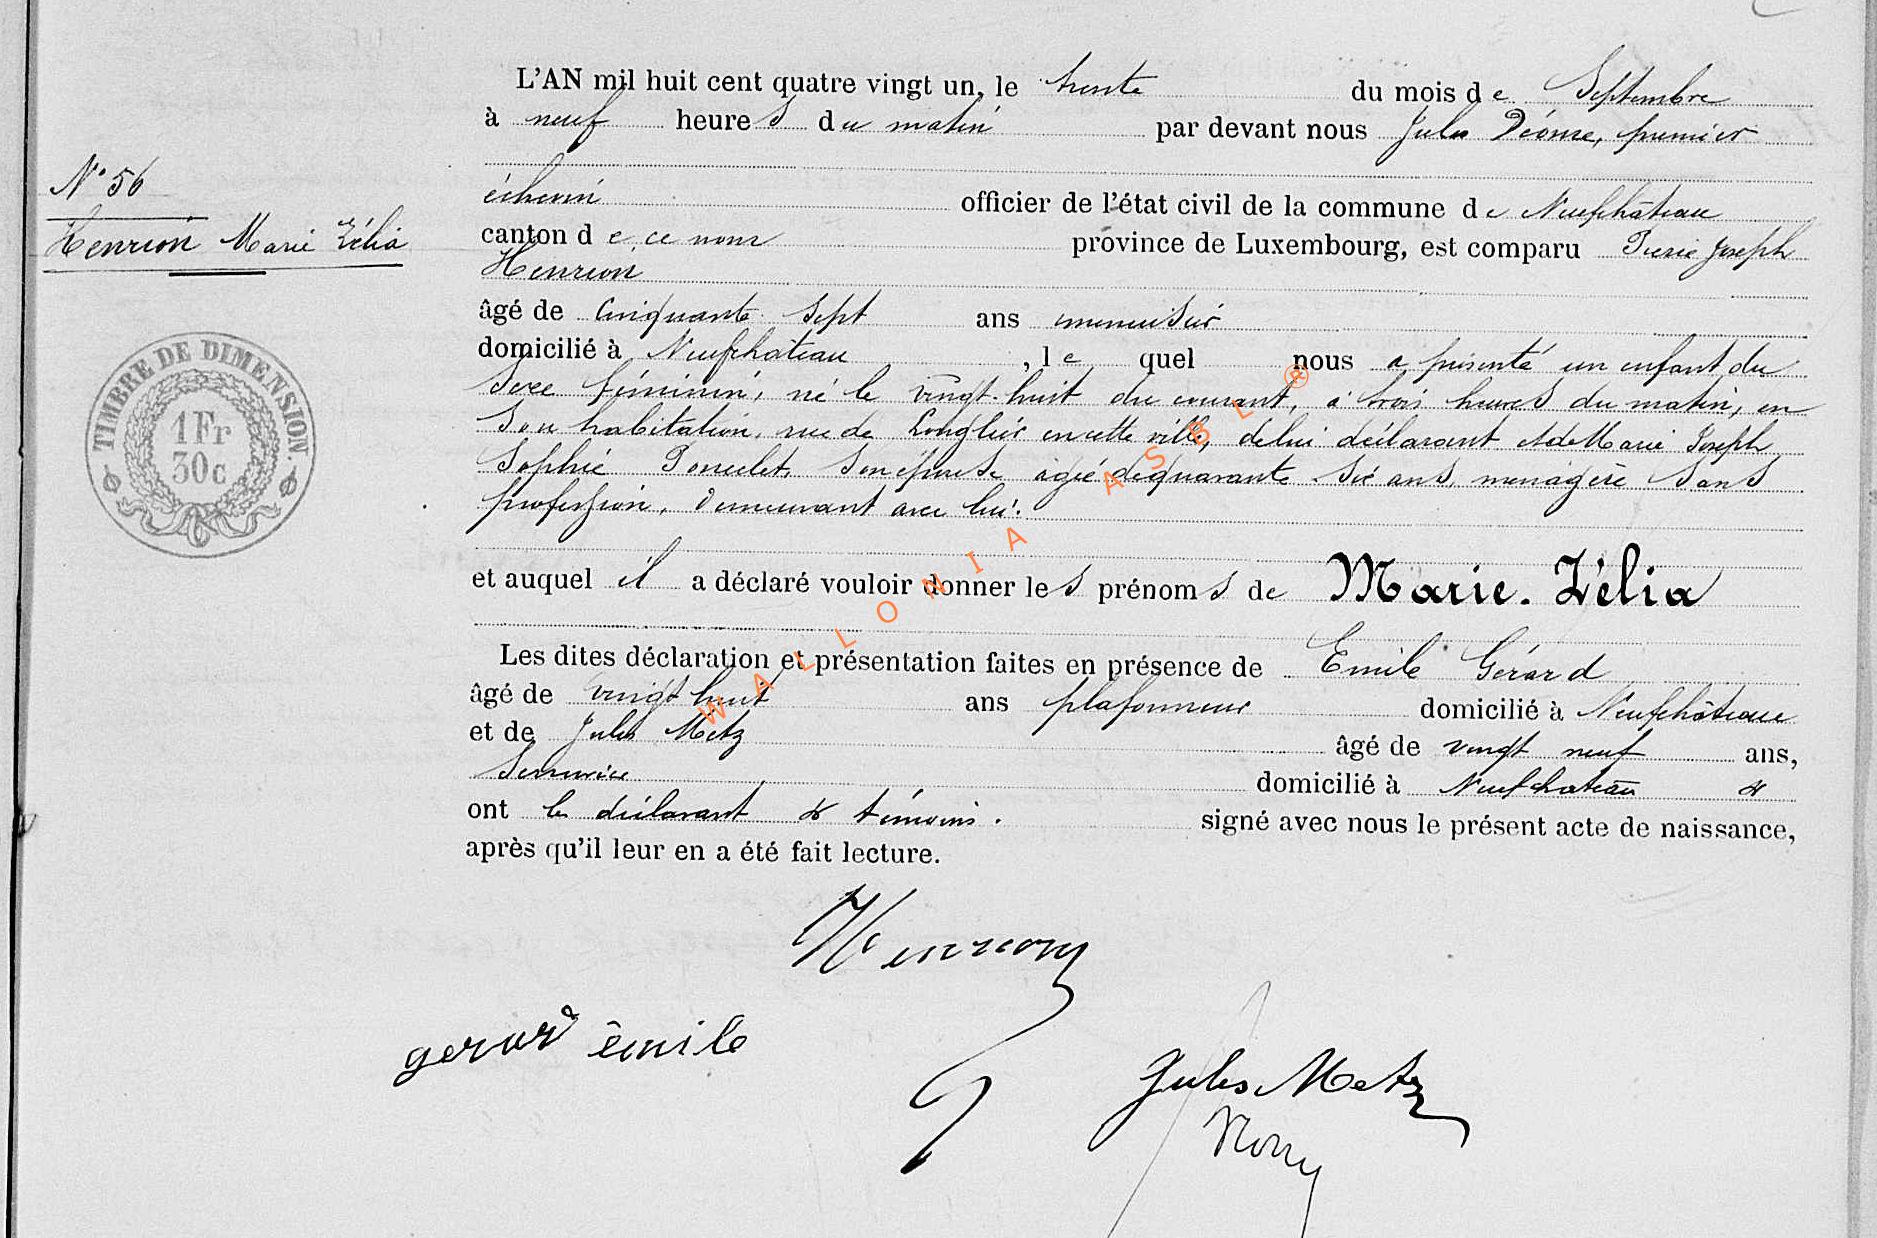 L'AN mil huit cent quatre vingt un, le trente du mois de Septembre
à neuf heures du matin par devant nous Jules premier
échevin officier de l'état civil de la commune de Neufchâteau
canton de ce nom province de Luxembourg, est comparu Pierre Joseph
Henrion
âgé de cinquante sept ans menuisier
domicilié à Neufchâteau, le quel nous a présenté un enfant du
sexe féminin, né le vingt-huit du courant, à trois heures du matin, en
son habitation, rue de Longlier en cette ville, de lui déclarant et de Marie Joseph
Sophie Poncelet, son épouse âgée de quarante six ans, ménagère sans
profession, demeurant avec lui.
et auquel il a déclaré vouloir donner les prénoms de Marie. Zélia
Les dites déclaration et présentation faites en présence de Emile Gérard
âgé de vingt huit ans plafonneur domicilié à Neufchâteau
et de Jules Metz âgé de vingt neuf ans,
Serrurier domicilié à Neufchateau &
ont les déclarant & témoins. signé avec nous le présent acte de naissance,
après qu'il leur en a été fait lecture.
N° 56
Henrion Marie Zélia
TIMBRE DE DIMENSION.
1 Fr
30c
WALLONIA ASBL ®
Henrion
gerard émile
Jules Metz